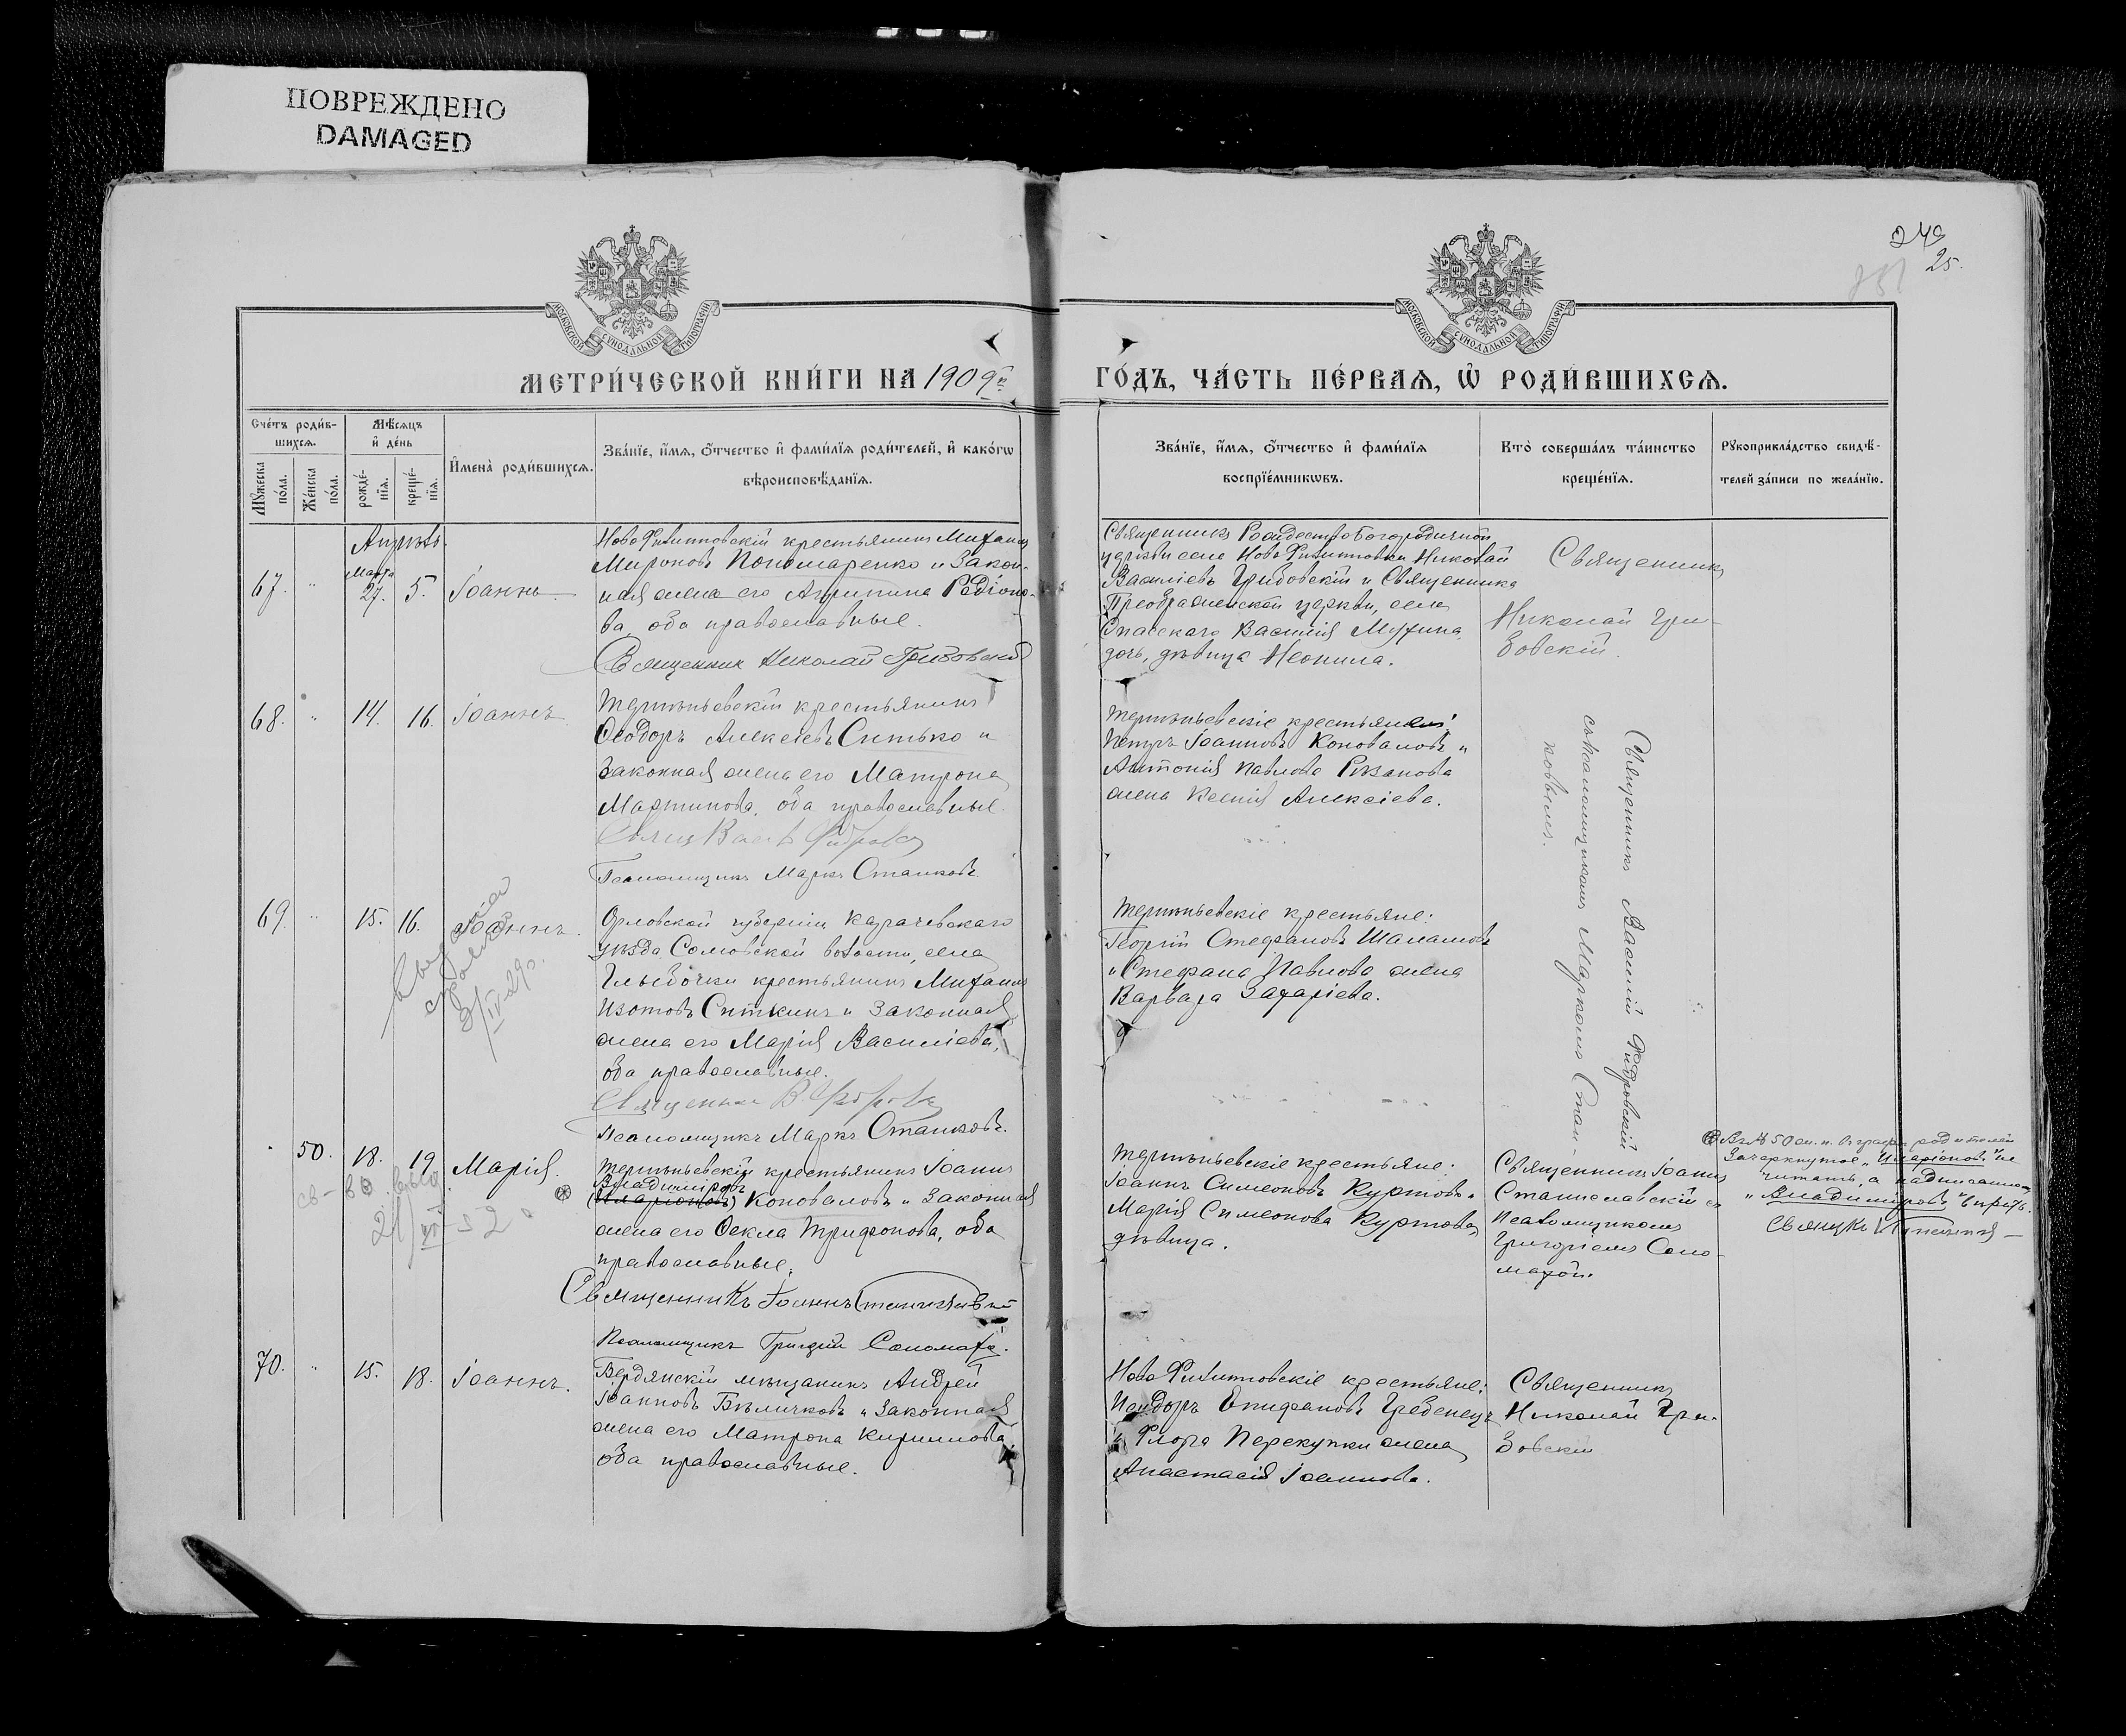 ПОВРЕЖДЕНО
DAMAGED
249
25.
351
МОСКОВСКОЙ СѴНОДАЛЬНОЙ ТИПОГРАФІИ
МОСКОВСКОЙ СѴНОДАЛЬНОЙ ТИПОГРАФІИ
МЕТРИ́ЧЕСКОЙ КНИ́ГИ НА 1909й
ГО́ДЪ, ЧА́СТЬ ПЕ́РВАѦ, Ѡ҆ РОДИ́ВШИХСѦ.
Сче́тъ роди́в-
шихсѧ.
Мꙋжеска по́ла.
Же́нска по́ла.
Мѣ́сѧцъ
и҆ де́нь
рожде́-
нїѧ.
креще́-
нїѧ.
И҆мена̀ роди́вшихсѧ.
Зва́нїе, и҆́мѧ, ѻ҆́тчество и҆ фами́лїѧ роди́телей, и҆ како́гѡ
вѣроисповѣ́данїѧ.
Зва́нїе, и҆́мѧ, ѻ҆́тчество и҆ фами́лїѧ
воспрїе́мникѡвъ.
Кто̀ соверша́лъ та́инство
креще́нїѧ.
Рꙋкоприкла́дство свидѣ́-
телей за́писи по жела́нїю.
Апрѣль.
67. " Марта 27. 5. Іоаннъ
НовоФилипповскій крестьянинъ Михаилъ
Мироновъ Пономаренко и закон-
ная жена его Агрипина Радіоно-
ва, оба православные.
Священник Николай Грибовскій
Священникъ РождествоБогородичной
церкви села НовоФилипповки Николай
Василіевъ Грибовскій и Священника
Преображенской церкви, села
Спасскаго Василія Мухина
дочь, дѣвица Неонила.
Священникъ
Николай Гри-
бовскій.
68. " 14. 16. Іоаннъ
Терпѣньевскій крестьянинъ
Ѳеодоръ Алексіевъ Ситько и
законная жена его Матрона
Мартинова, оба православные.
Псаломщикъ Маркъ Станковъ
Терпѣньевскіе крестьяне:
Петръ Іоанновъ Коноваловъ и
Антонія Павлова Рязанова
жена Ксенія Алексіева.
Священникъ Василій Фидровскій
съ псаломщикомъ Маркомъ Стан-
ковымъ.
69. " 15. 16. Іоаннъ.
Орловской губерніи Карачевскаго
уѣзда, Сомовской волости, села
Глыбочки крестьянинъ Михаилъ
Изотовъ Ситкинъ и законная
жена его Марія Василіева,
оба православные.
Псаломщикъ Маркъ Станковъ.
Терпѣньевскіе крестьяне:
Георгій Стефановъ Шаламовъ
и Стефана Павлова жена
Варвара Захаріева.
50. 18. 19. Марія.
св-во
21/VI-52
Терпѣньевскій крестьянинъ Іоаннъ
Владиміровъ
(Иларіоновъ) Коноваловъ и законная
жена его Ѳекла Трифонова, оба
православные.
Священникъ Іоаннъ Станиславскій
Псаломщикъ Григорій Соломаха.
Терпѣньевскіе крестьяне:
Іоаннъ Симеоновъ Куртовъ и
Марія Симеонова Куртова,
дѣвица.
Священникъ Іоаннъ
Станиславскій съ
Псаломщикомъ
Григоріемъ Соло-
махой.
Въ № 50 ж. п. въ графѣ родителей
Зачеркнутое „Иларіоновъ" не
читать, а надписанное
„Владиміровъ" вѣрить.
70. " 15. 18. Іоаннъ.
Бердянскій мѣщанинъ Андрей
Іоанновъ Бѣличковъ и законная
жена его Матрона Кириллова,
оба православные.
НовоФилипповскіе крестьяне:
Исидоръ Епифановъ Гребенецъ
и Флора Перекупки жена
Анастасія Іоаннова.
Священникъ
Николай Гри-
бовскій